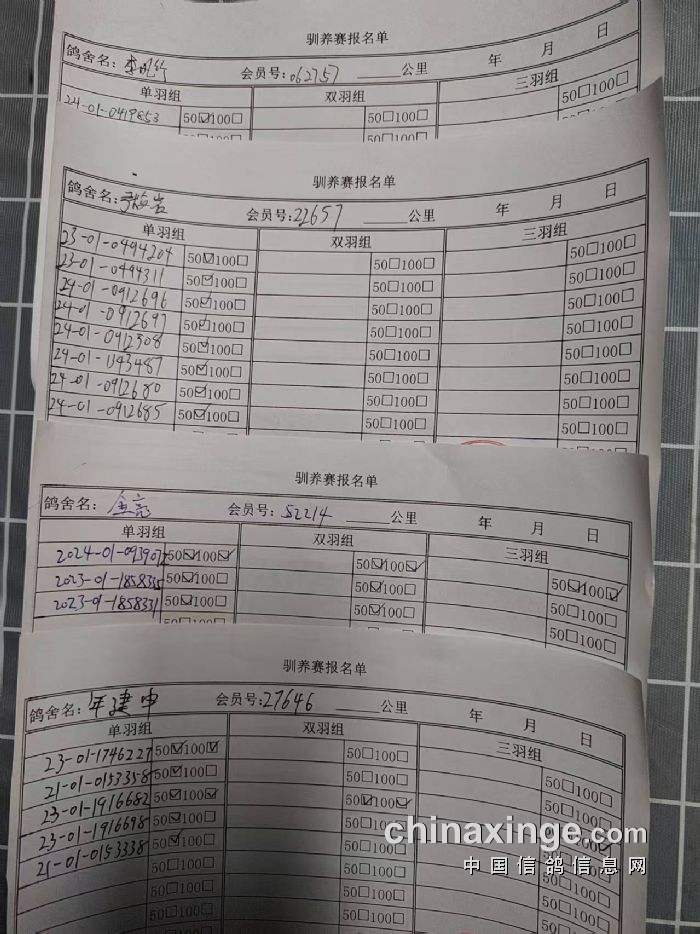 驯养赛报名单
鸽舍名: 会员号:062757 公里 年 月 日
单羽组 双羽组 三羽组
24-01-0419853 50☑100□ 50□100□ 50□100□
驯养赛报名单
鸽舍名: 会员号:22657 公里 年 月 日
单羽组 双羽组 三羽组
23-01-0494204 50☑100□ 50□100□ 50□100□
23-01-0494311 50☑100□ 50□100□ 50□100□
24-01-0912696 50☑100□ 50□100□ 50□100□
24-01-0912697 50☑100□ 50□100□ 50□100□
24-01-0912508 50☑100□ 50□100□ 50□100□
24-01-1143487 50☑100□ 50□100□ 50□100□
24-01-0912680 50☑100□ 50□100□ 50□100□
24-01-0912685 50☑100□ 50□100□ 50□100□
驯养赛报名单
鸽舍名:金亮 会员号:52214 公里 年 月 日
单羽组 双羽组 三羽组
2024-01-093907 50☑100☑ 50☑100☑ 50☑100☑
2023-01-1858335 50☑100□ 50☑100□ 50☑100□
2023-01-1858331 50☑100□ 50☑100□ 50□100□
驯养赛报名单
鸽舍名:年建申 会员号:27646 公里 年 月 日
单羽组 双羽组 三羽组
23-01-1746227 50☑100☑ 50□100□ 50□100□
21-01-0153358 50☑100□ 50□100□ 50□100□
23-01-1916682 50☑100☑ 50☑100☑
23-01-1916698 50☑100□ 50□100□
21-01-0153338 50☑100□ 50□100□
50□100□ 50□100□ 50□100□
50□100□ 50□100□ 50□100□
50□100□ 50□100□
chinaxinge.com
中国信鸽信息网